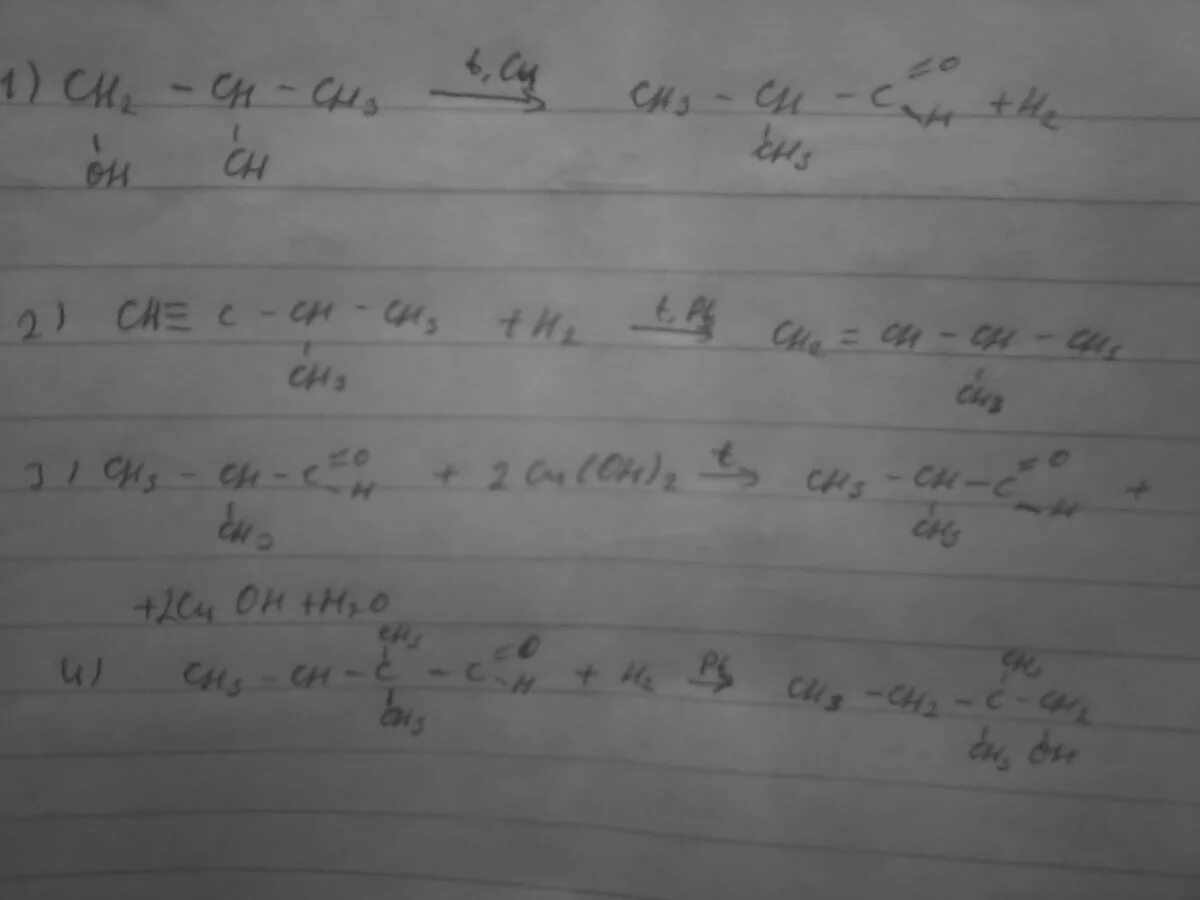 1) CH2 - CH - CH3 t, Cu → CH3 - CH - C =O -H + H2
OH CH CH3
2) CH≡ C - CH - CH3 + H2 t, Pt → CH2 = CH - CH - CH3
CH3 CH3
3) CH3 - CH - C =O -H + 2Cu(OH)2 t → CH3 - CH - C =O -H +
CH3 CH3
+2Cu OH + H2O
CH3 CH3
4) CH3 - CH - C - C =O -H + H2 Pt → CH3 - CH2 - C - CH2
CH3 CH3 OH